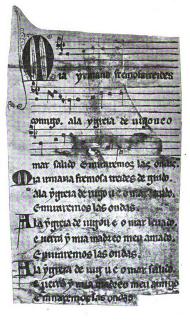 Mia yrmana fremosa treides
comigo. ala ygreia de uigo u e o
mar salido. E miraremos las ondas.
Mia irmana fremosa treides de grado.
ala ygreia de uigo u e o mar
E miraremos las ondas.
Ala ygreia de uigo u e o mar leuado.
e uerra y mia madre o meu amado.
E miraremos las ondas.
Ala ygreia de uigo u e o mar salido.
e uerra y mia madre o meu amigo
E miraremos las ondas.